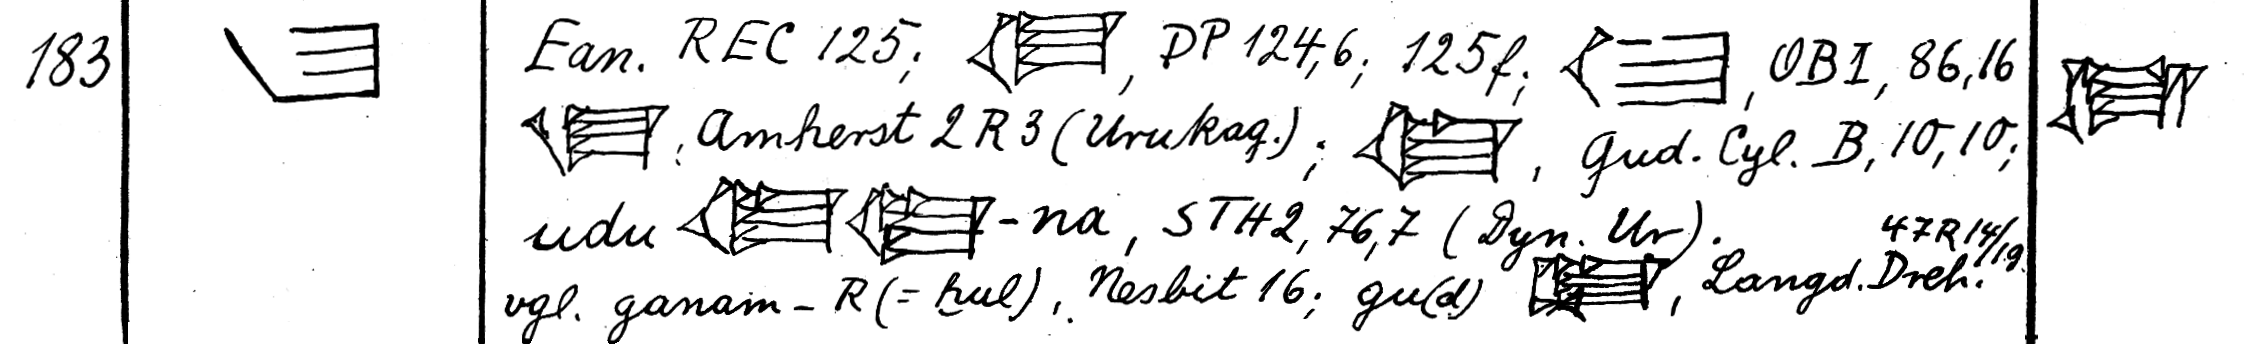 183 Ean. REC 125; , DP 124,6; 125f; , OBI, 86,16
, Amherst 2 R 3 (Urukag.); , Gud. Cyl. B, 10, 10;
udu -na, STH 2, 76,7 (Dyn. Ur). 47 R 14/19
vgl. ganam - R (= ḫul), Nesbit 16; gu(d) , Langd. Dreh.